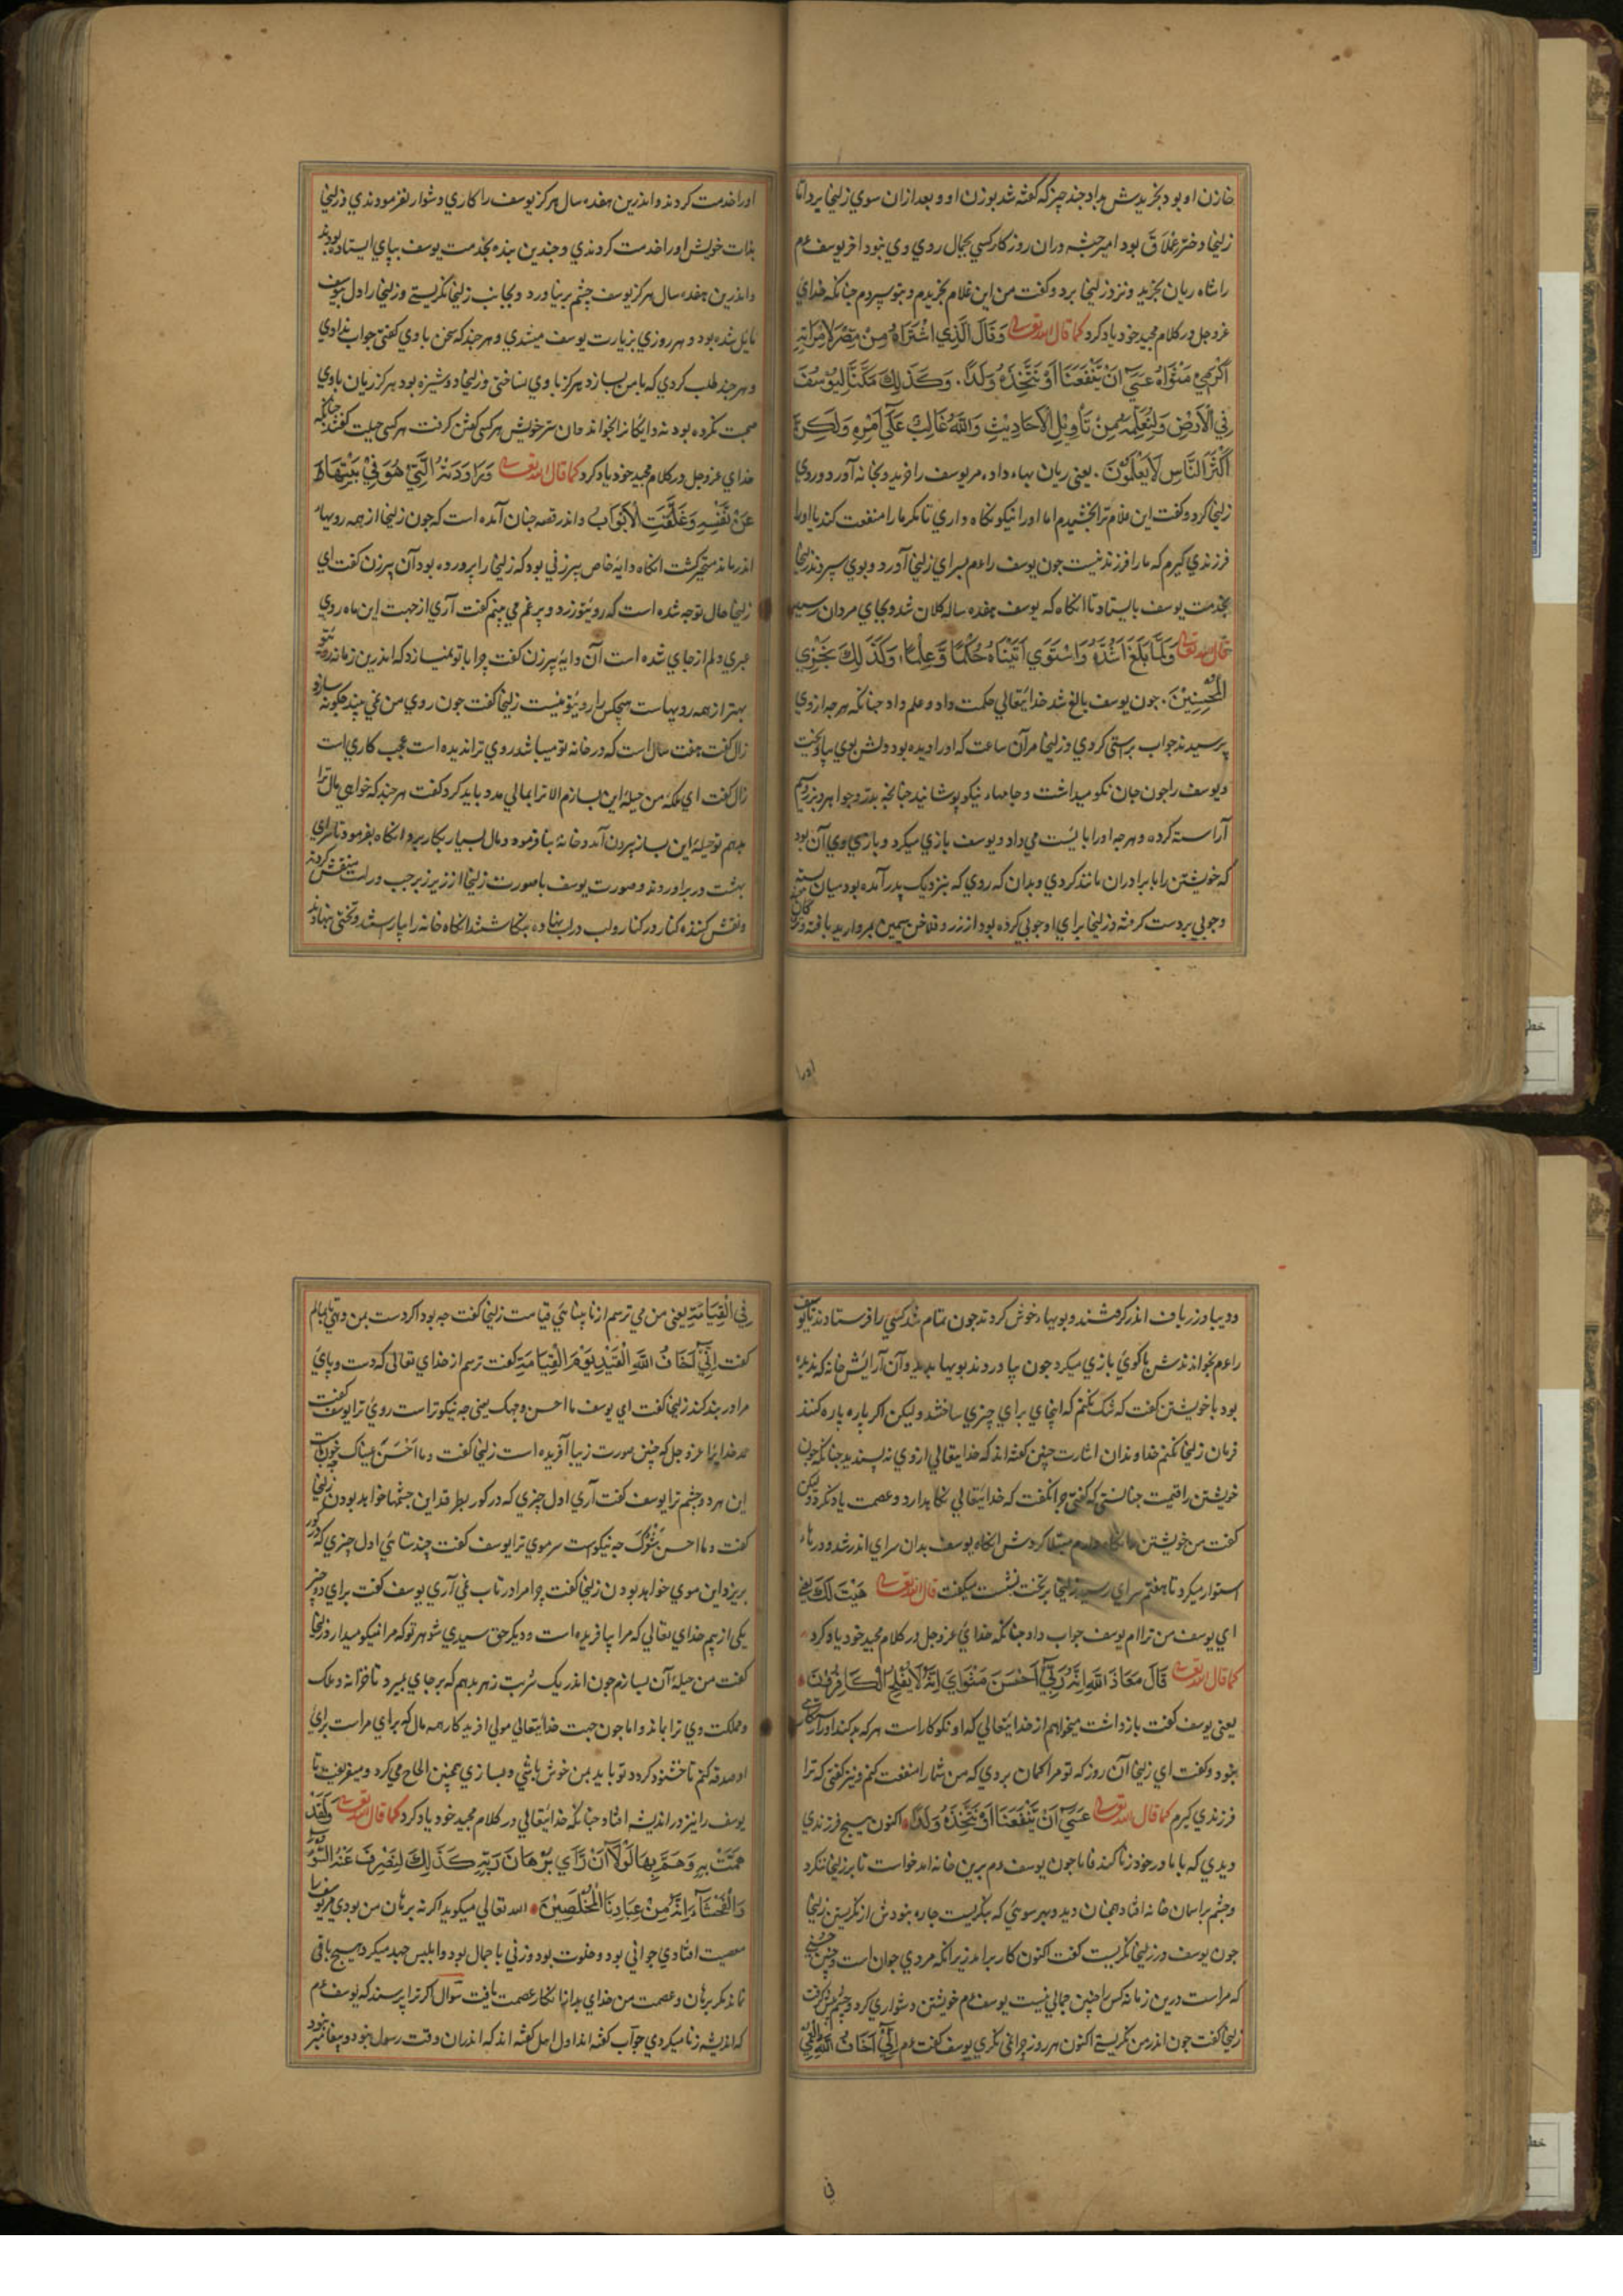 خازن او بود بخریدش بداد چند چیز که گفته شد بوزن او و بعد ازان سوی زلیخا برد اما
زلیخا دختر عملاق بود امیر حبشه دران روزکار کسی بجمال ردی وی نبود اخر یوسف عم
را شاه ریان بخرید و نزد زلیخا برد و کفت من این غلام بخریدم و بتو سپردم چنانکه خدای
عز و جل در کلام مجید خود یاد کرد کما قال الله تعالی وَقَالَ الَّذِي اشْتَرَاهُ مِنْ مِصْرَ لِامْرَأَتِهِ
أَكْرِمِي مَثْوَاهُ عَسَى أَنْ يَنْفَعَنَا أَوْ نَتَّخِذَهُ وَلَدًا. وَكَذَلِكَ مَكَّنَّا لِيُوسُفَ
فِي الْأَرْضِ وَلِنُعَلِّمَهُ مِنْ تَأْوِيلِ الْأَحَادِيثِ وَاللَّهُ غَالِبٌ عَلَى أَمْرِهِ وَلَكِنَّ
أَكْثَرَ النَّاسِ لَا يَعْلَمُونَ. یعنی ریان بهاء داد مر یوسف را خرید و بخانه آورد و روی
زلیخا کرد و کفت این غلام ترا بخشیدم اما اورا نیکو نکاه داری تا مکر ما را منفعت کند یا اورا
فرزندی کیرم که ما را فرزند نیست جون یوسف را عم بسرای زلیخا آورد و بوی سپرد زلیخا
بخدمت یوسف بایستاد تا انکاه که یوسف هفده ساله کلان شد و بجای مردان رسید
قال الله تعالی وَلَمَّا بَلَغَ أَشُدَّهُ وَاسْتَوَى آتَيْنَاهُ حُكْمًا وَعِلْمًا وَكَذَلِكَ نَجْزِي
الْمُحْسِنِينَ. جون یوسف بالغ شد خدایتعالی حکمت داد و علم داد چنانکه هرچه از وی
پرسیدند جواب براستی کردی و زلیخا مرآن ساعت که اورا دیده بود دلش بوی بیاویخت
و یوسف را جون جان نکو میداشت و جامهاء نیکو پوشانید چنانچه بدر و جواهر و بزر و سیم
آراسته کرده و هرچه اورا بایست می داد و یوسف بازی میکرد و بازی وی آن بود
که خویشتن را با برادران مانند کردی و بدان که روی که بنزدیک پدر آمده بود میان بسته
و چوبی بردست کرفته و زلیخا برای او چوبی کرده بود از زر و فلاخن سیمین بمروارید بافته
اورا
اورا خدمت کردند و اندرین هفده سال هرکز یوسف را کاری دشوار نفرمودندی و زلیخا
بذات خویش اورا خدمت کردندی و چندین بنده بخدمت یوسف بپای ایستاده بودند
و اندرین هفده سال هرکز یوسف چشم برنیاورد و بجانب زلیخا نکریستی و زلیخا را دل بیوسف
مایل شده بود و هر روزی بزیارت یوسف میشدی و هر چند که سخن با وی کفتی جواب ندادی
و هر چند طلب کردی که با من بسازد هرکز با وی نساختی و زلیخا دوشیزه بود هرکز ریان با وی
صحبت نکرده بود دایکانرا بخواند و ان سر خویش هر کسی کفتن کرفت هر کسی حیلت کفتند چنانکه
خدای عز و جل در کلام مجید خود یاد کرد کما قال الله تعالی وَرَاوَدَتْهُ الَّتِي هُوَ فِي بَيْتِهَا
عَنْ نَفْسِهِ وَغَلَّقَتِ الْأَبْوَابَ و اندر قصه چنان آمده است که جون زلیخا از همه رویها
اندر ماند متحیر کشت انکاه دایهٔ خاص پیرزنی بود که زلیخا را پرورده بود آن پیرزن کفت ای
زلیخا حال توچه شده است که روی تو زرد و پر غم می بینم کفت آری از جهت این ماه روی
عبری دلم از جای شده است آن دایه پیرزن کفت چرا با تو نمیسازد که اندرین زمانه روی تو
بهتر از همه رویهاست هیچکس را روی تو نیست زلیخا کفت جون روی من نمی بیند چکونه سازد
زال کفت هفت سال است که در خانه تو میباشد روی ترا ندیده است عجب کاری است
زال کفت ای ملکه من حیلهٔ این بسازم الا ترا بمالی مدد باید کرد کفت هر چند که خواهی مال ترا
بدهم تو حیلهٔ این بساز بیرون آمد و خانهٔ بنا فرمود و مال بسیار بکار برد و انکاه بفرمود تا سرای
بهشت در برآوردند و صورت یوسف با صورت زلیخا از زیر زبر چپ و راست منقش کردند
و نقش کننده کنار در کنار و لب در لب نهاده بنکاشتند انکاه خانه را بیاراستند و تختی بنهادند
و دیبا و زرباف اندر کرفتند و بویهاء خوش کردند جون تمام شد کسی را فرستادند تا یوسف
را عم بخواندندش با کوی بازی میکرد جون بیاوردند بویها بدید و آن آرایش خانه که ندیده
بود با خویشتن کفت که شک نکنم که اینجای برای چیزی ساخته‌اند ولیکن اکر پاره پاره کنند
فرمان زلیخا نکنم خداوندان اشارت چنین کفته‌اند که خدایتعالی از وی نه پسندید چنانکه جون
خویشتن را قیمت چنانستی که کفتی چرا نکفت که خدایتعالی نکاهدارد و عصمت یاد نکرد ولیکن
کفت من خویشتن را نکاه دارم مبتلا کردش انکاه یوسف بدان سرای اندر شد و درهاء
استوار میکرد تا هفتم سرای رسید زلیخا بر تخت نشست میکفت قال الله تعالی هَيْتَ لَكَ یعنی
ای یوسف من ترا ام یوسف جواب داد چنانکه خدای عز و جل در کلام مجید خود یاد کرد
کما قال الله تعالی قَالَ مَعَاذَ اللَّهِ إِنَّهُ رَبِّي أَحْسَنَ مَثْوَايَ إِنَّهُ لَا يُفْلِحُ الْكَافِرُونَ
یعنی یوسف کفت بازداشت میخواهم از خدایتعالی که او نکوکار است هر که بد کند اورا رستکاری
نبود و کفت ای زلیخا آن روز که تو مرا کمان بردی که من شما را منفعت کنم و نیز کفتی که ترا
فرزندی کیرم کما قال الله تعالی عَسَى أَنْ يَنْفَعَنَا أَوْ نَتَّخِذَهُ وَلَدًا اکنون هیچ فرزندی
دیدی که با مادر خود زنا کند فاما جون یوسف عم برین خانه اندر خواست تا بر زلیخا ننکرد
و چشم بر آسمان خانه افتاد همچنان دید و بهر سوئی که بنکریست چاره نبودش از نکریستن زلیخا
جون یوسف در زلیخا نکریست کفت اکنون کار برآمد زیرانکه مردی جوان است و چنین حسنی
که مراست درین زمانه کس را چنین جمالی نیست یوسف عم خویشتن دشواری کرد و چشم
زلیخا کفت جون اندر من نکریستی اکنون هر روز چرا نمی نکری یوسف کفت عم إِنِّي أَخَافُ اللَّهَ
فی
فِي الْقِيَامَةِ یعنی من می ترسم از نابینائی قیامت زلیخا کفت چه بود اکر دست بمن دهی تا بمالم
کفت إِنِّي أَخَافُ اللَّهَ الْقَيْدَ يَوْمَ الْقِيَامَةِ کفت ترسم از خدای تعالی که دست و پای
مرا در بند کند زلیخا کفت ای یوسف ما احسن وجهک یعنی چه نیکو تراست روی ترا یوسف کفت
حمد خدایرا عز و جل که چنین صورت زیبا آفریده است زلیخا کفت و ما اَحْسَنَ عیناک چه خوب است
این هر دو چشم ترا یوسف کفت آری اول چیزی که در کور بطرقد این چشمها خواهد بودن زلیخا
کفت و ما احسن شَعْرُکَ چه نیکوست سر موی ترا یوسف کفت چند ستائی اول چیزی که در کور
بریزد این موی خواهد بودن زلیخا کفت چرا مرا در تاب می آری یوسف کفت برای دو چیز
یکی از بیم خدای تعالی که مرا بیافریده است و دیکر حق سیدی شوهر تو که مرا نیکو میدارد زلیخا
کفت من حیلهٔ آن بسازم جون اندر یک شربت زهر بدهم که بر جای بمیرد تا خزانه و ملک
و مملکت وی ترا بماند و اما جون جهت خدایتعالی مولی آفریدکار همه مال که برای مراست برای
او صدقه کنم تا خشنود کردد تو باید بمن خوش باشی و بسازی همچنین الحاح می کرد و میفریفت تا
یوسف را نیز در اندیشه افتاد چنانکه خدایتعالی در کلام مجید خود یاد کرد کما قال الله تعالی وَلَقَدْ
هَمَّتْ بِهِ وَهَمَّ بِهَا لَوْلَا أَنْ رَأَى بُرْهَانَ رَبِّهِ كَذَلِكَ لِنَصْرِفَ عَنْهُ السُّوءَ
وَالْفَحْشَاءَ إِنَّهُ مِنْ عِبَادِنَا الْمُخْلَصِينَ الله تعالی میکوید اکر نه برهان من بودی مر یوسف را
معصیت افتادی جوانی بود و خلوت بود و زنی با جمال بود و ابلیس جهد میکرد هیچ باقی
نماند مکر برهان و عصمت من خدای بدانها نکار عصمت یافت سوال اکر ترا پرسند که یوسف عم
که اندیشه زنا میکردی جواب کفته‌اند اول اهل کفته‌اند که اندران وقت رسول نبود و پیغامبر نبود